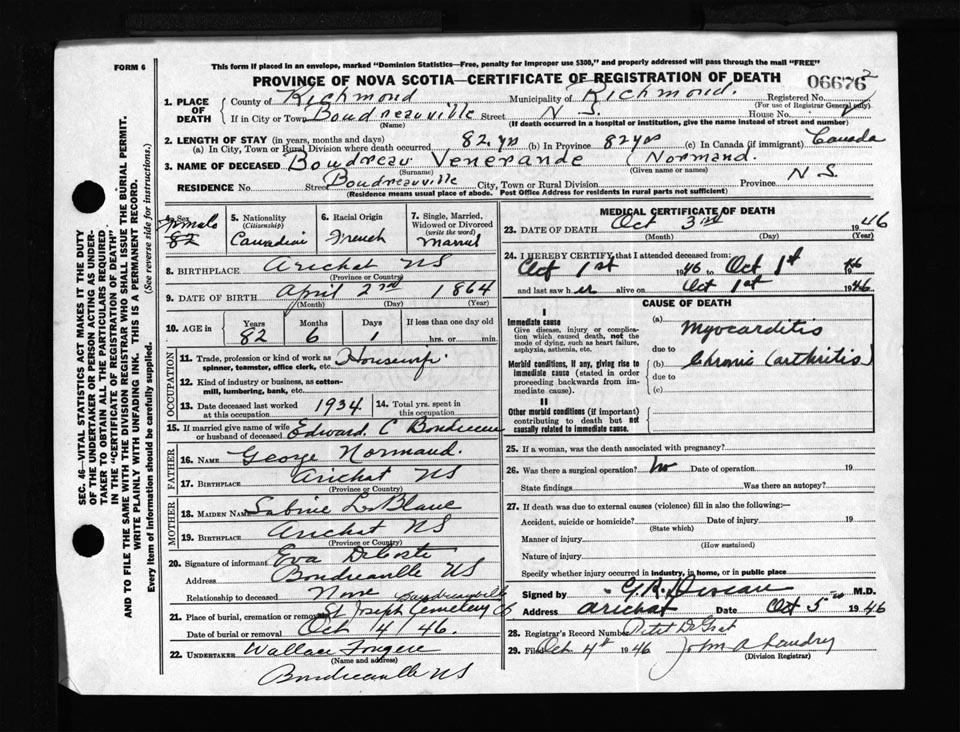 FORM 6
This form if placed in an envelope, marked "Dominion Statistics—Free, penalty for improper use $300," and properly addressed will pass through the mail "FREE"
PROVINCE OF NOVA SCOTIA—CERTIFICATE OF REGISTRATION OF DEATH
06676 2
1. PLACE OF DEATH
County of Richmond Municipality of Richmond. Registered No.
(For use of Registrar General only)
If in City or Town Boudreauville Street N S. House No.
(Name) (If death occurred in a hospital or institution, give the name instead of street and number)
2. LENGTH OF STAY (in years, months and days)
(a) In City, Town or Rural Division where death occurred 82 yrs (b) In Province 82 yrs (c) In Canada (if immigrant) Canada
3. NAME OF DECEASED Boudreau Venerande (Normand.
(Surname) (Given name or names)
RESIDENCE No. Street Boudreauville City, Town or Rural Division Province N S.
(Residence means usual place of abode. Post Office Address for residents in rural parts not sufficient)
4. Sex Female 82
5. Nationality (Citizenship) Canadian
6. Racial Origin French
7. Single, Married, Widowed or Divorced (write the word) Married
8. BIRTHPLACE Arichat NS
(Province or Country)
9. DATE OF BIRTH April 2nd 1864
(Month) (Day) (Year)
10. AGE in Years Months Days If less than one day old
82 6 1 hrs. or min.
OCCUPATION
11. Trade, profession or kind of work as spinner, teamster, office clerk, etc. Housewife
12. Kind of industry or business, as cotton-mill, lumbering, bank, etc.
13. Date deceased last worked at this occupation 1934. 14. Total yrs. spent in this occupation
15. If married give name of wife or husband of deceased Edward C Boudreau
FATHER
16. NAME George Normand.
17. BIRTHPLACE Arichat NS
(Province or Country)
MOTHER
18. MAIDEN NAME Sabine LeBlanc
19. BIRTHPLACE Arichat NS
(Province or Country)
20. Signature of informant Eva DeCoste
Address Boudreauville NS
Relationship to deceased None
Boudreauville
21. Place of burial, cremation or removal St Joseph Cemetery
Date of burial or removal Oct 4 / 46.
22. UNDERTAKER Wallace Fougere
(Name and address)
Boudreauville NS
MEDICAL CERTIFICATE OF DEATH
23. DATE OF DEATH Oct 3rd 1946
(Month) (Day)
24. I HEREBY CERTIFY that I attended deceased from:
Oct 1st 1946 to Oct 1st 1946
and last saw her alive on Oct 1st 1946
CAUSE OF DEATH
I
Immediate cause
Give disease, injury or complication which caused death, not the mode of dying, such as heart failure, asphyxia, asthenia, etc.
(a) Myocarditis
due to
Morbid conditions, if any, giving rise to immediate cause (stated in order proceeding backwards from immediate cause).
(b) Chronic (arthritis)
due to
(c)
II
Other morbid conditions (if important) contributing to death but not causally related to immediate cause.
25. If a woman, was the death associated with pregnancy?
26. Was there a surgical operation? No Date of operation 19
State findings Was there an autopsy?
27. If death was due to external causes (violence) fill in also the following:—
Accident, suicide or homicide? Date of injury 19
(State which)
Manner of injury
(How sustained)
Nature of injury
Specify whether injury occurred in industry, in home, or in public place
Signed by M.D.
Address Arichat Date Oct 5 1946
28. Registrar's Record Number Petit DeGrat
29. Filed Oct 4th 1946 John A Landry
(Division Registrar)
SEC. 46—VITAL STATISTICS ACT MAKES IT THE DUTY
OF THE UNDERTAKER OR PERSON ACTING AS UNDER-
TAKER TO OBTAIN ALL THE PARTICULARS REQUIRED
IN THE "CERTIFICATE OF REGISTRATION OF DEATH"
AND TO FILE THE SAME WITH THE DIVISION REGISTRAR WHO SHALL ISSUE THE BURIAL PERMIT.
WRITE PLAINLY WITH UNFADING INK. THIS IS A PERMANENT RECORD.
Every item of information should be carefully supplied. (See reverse side for instructions.)